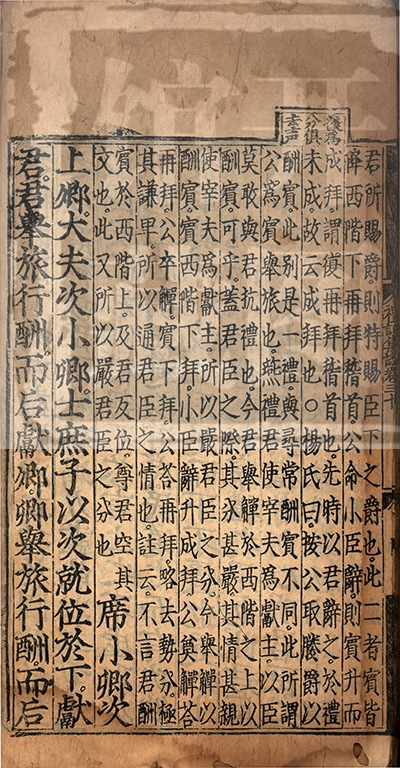 為
分俱
去声
君所賜爵。則特賜臣下之爵也。此二者賓皆
降西階下再拜稽首。公命小臣辭。則賓升而
成拜。謂復再拜稽首也。先時以君辭之。於禮
未成。故云成拜也○楊氏曰。按公取媵爵以
酬賓。此別是一禮。與尋常酬賓不同。此所謂
公爲賓舉旅也。燕禮君使宰夫爲獻主。以臣
莫敢與君抗禮也。今君舉觶於西階之上。以
酬賓。可乎。蓋君臣之際。其分甚嚴。其情甚親。
使宰夫爲獻主。所以嚴君臣之分。今舉觶以
酬賓。賓西階下拜。小臣辭。升成拜。公奠觶答
再拜。公卒觶。賓下拜。公荅再拜。略去勢分。極
其謙卑。所以通君臣之情也。註云。不言君酬
賓於西階上。及君反位。尊君空其
文也。此又所以嚴君臣之分也
席小卿次
上卿。大夫次小卿。士庶子以次就位於下。獻
君。君舉旅行酬。而后獻卿。卿舉旅行酬。而后